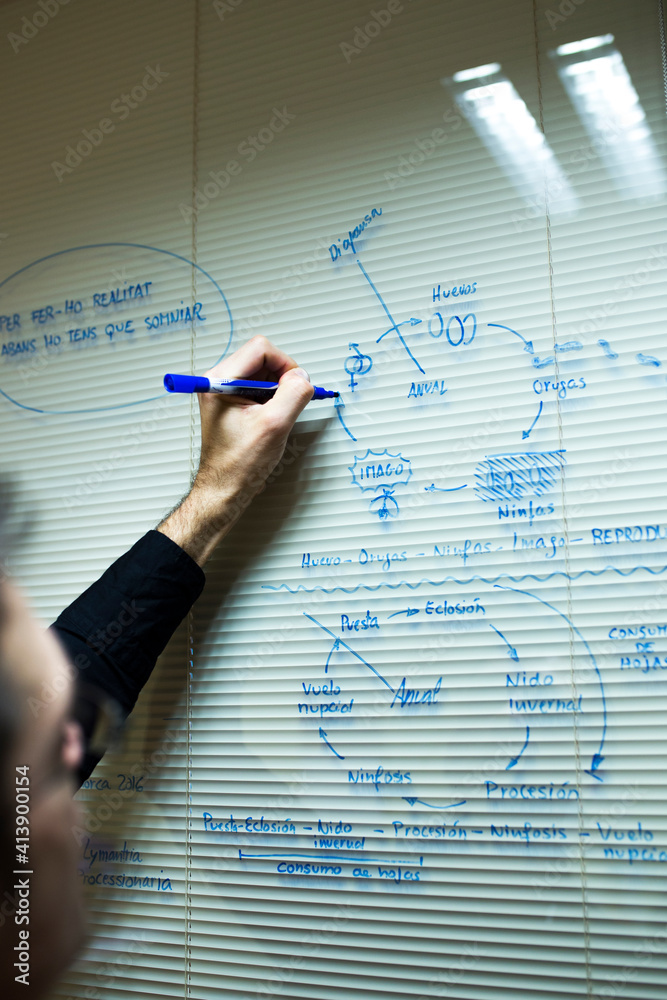 PER FER-HO REALITAT
ABANS HO TENS QUE SOMNIAR
Diapausa
Huevos
ANUAL
Orugas
IMAGO
Ninfas
Huevo - Orugas - Ninfas - Imago - REPRODU
Puesta
Eclosión
CONSUMO
DE
HOJAS
Vuelo
nupcial
Anual
Nido
invernal
Ninfosis
Procesión
orca 2016
Puesta-Eclosión - Nido
invernal
- Procesión - Ninfosis - Vuelo
nupcial
consumo de hojas
Lymantria
Processionaria
Adobe Stock
#413900154